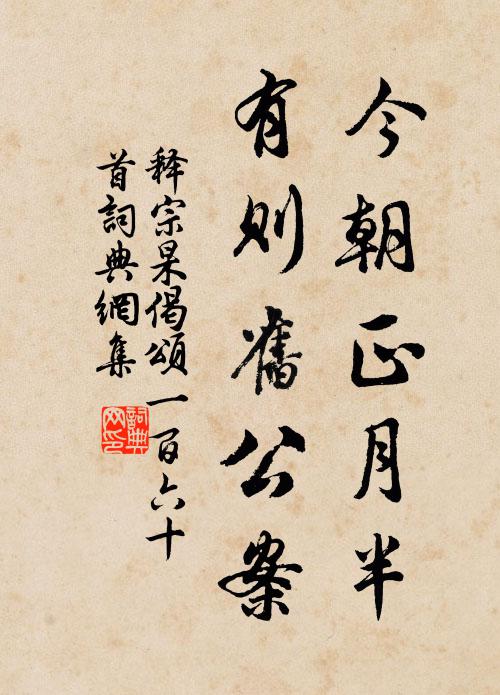 今朝正月半
有則舊公案
释宗杲偈頌一百六十
首詞典網集
詞典
网印